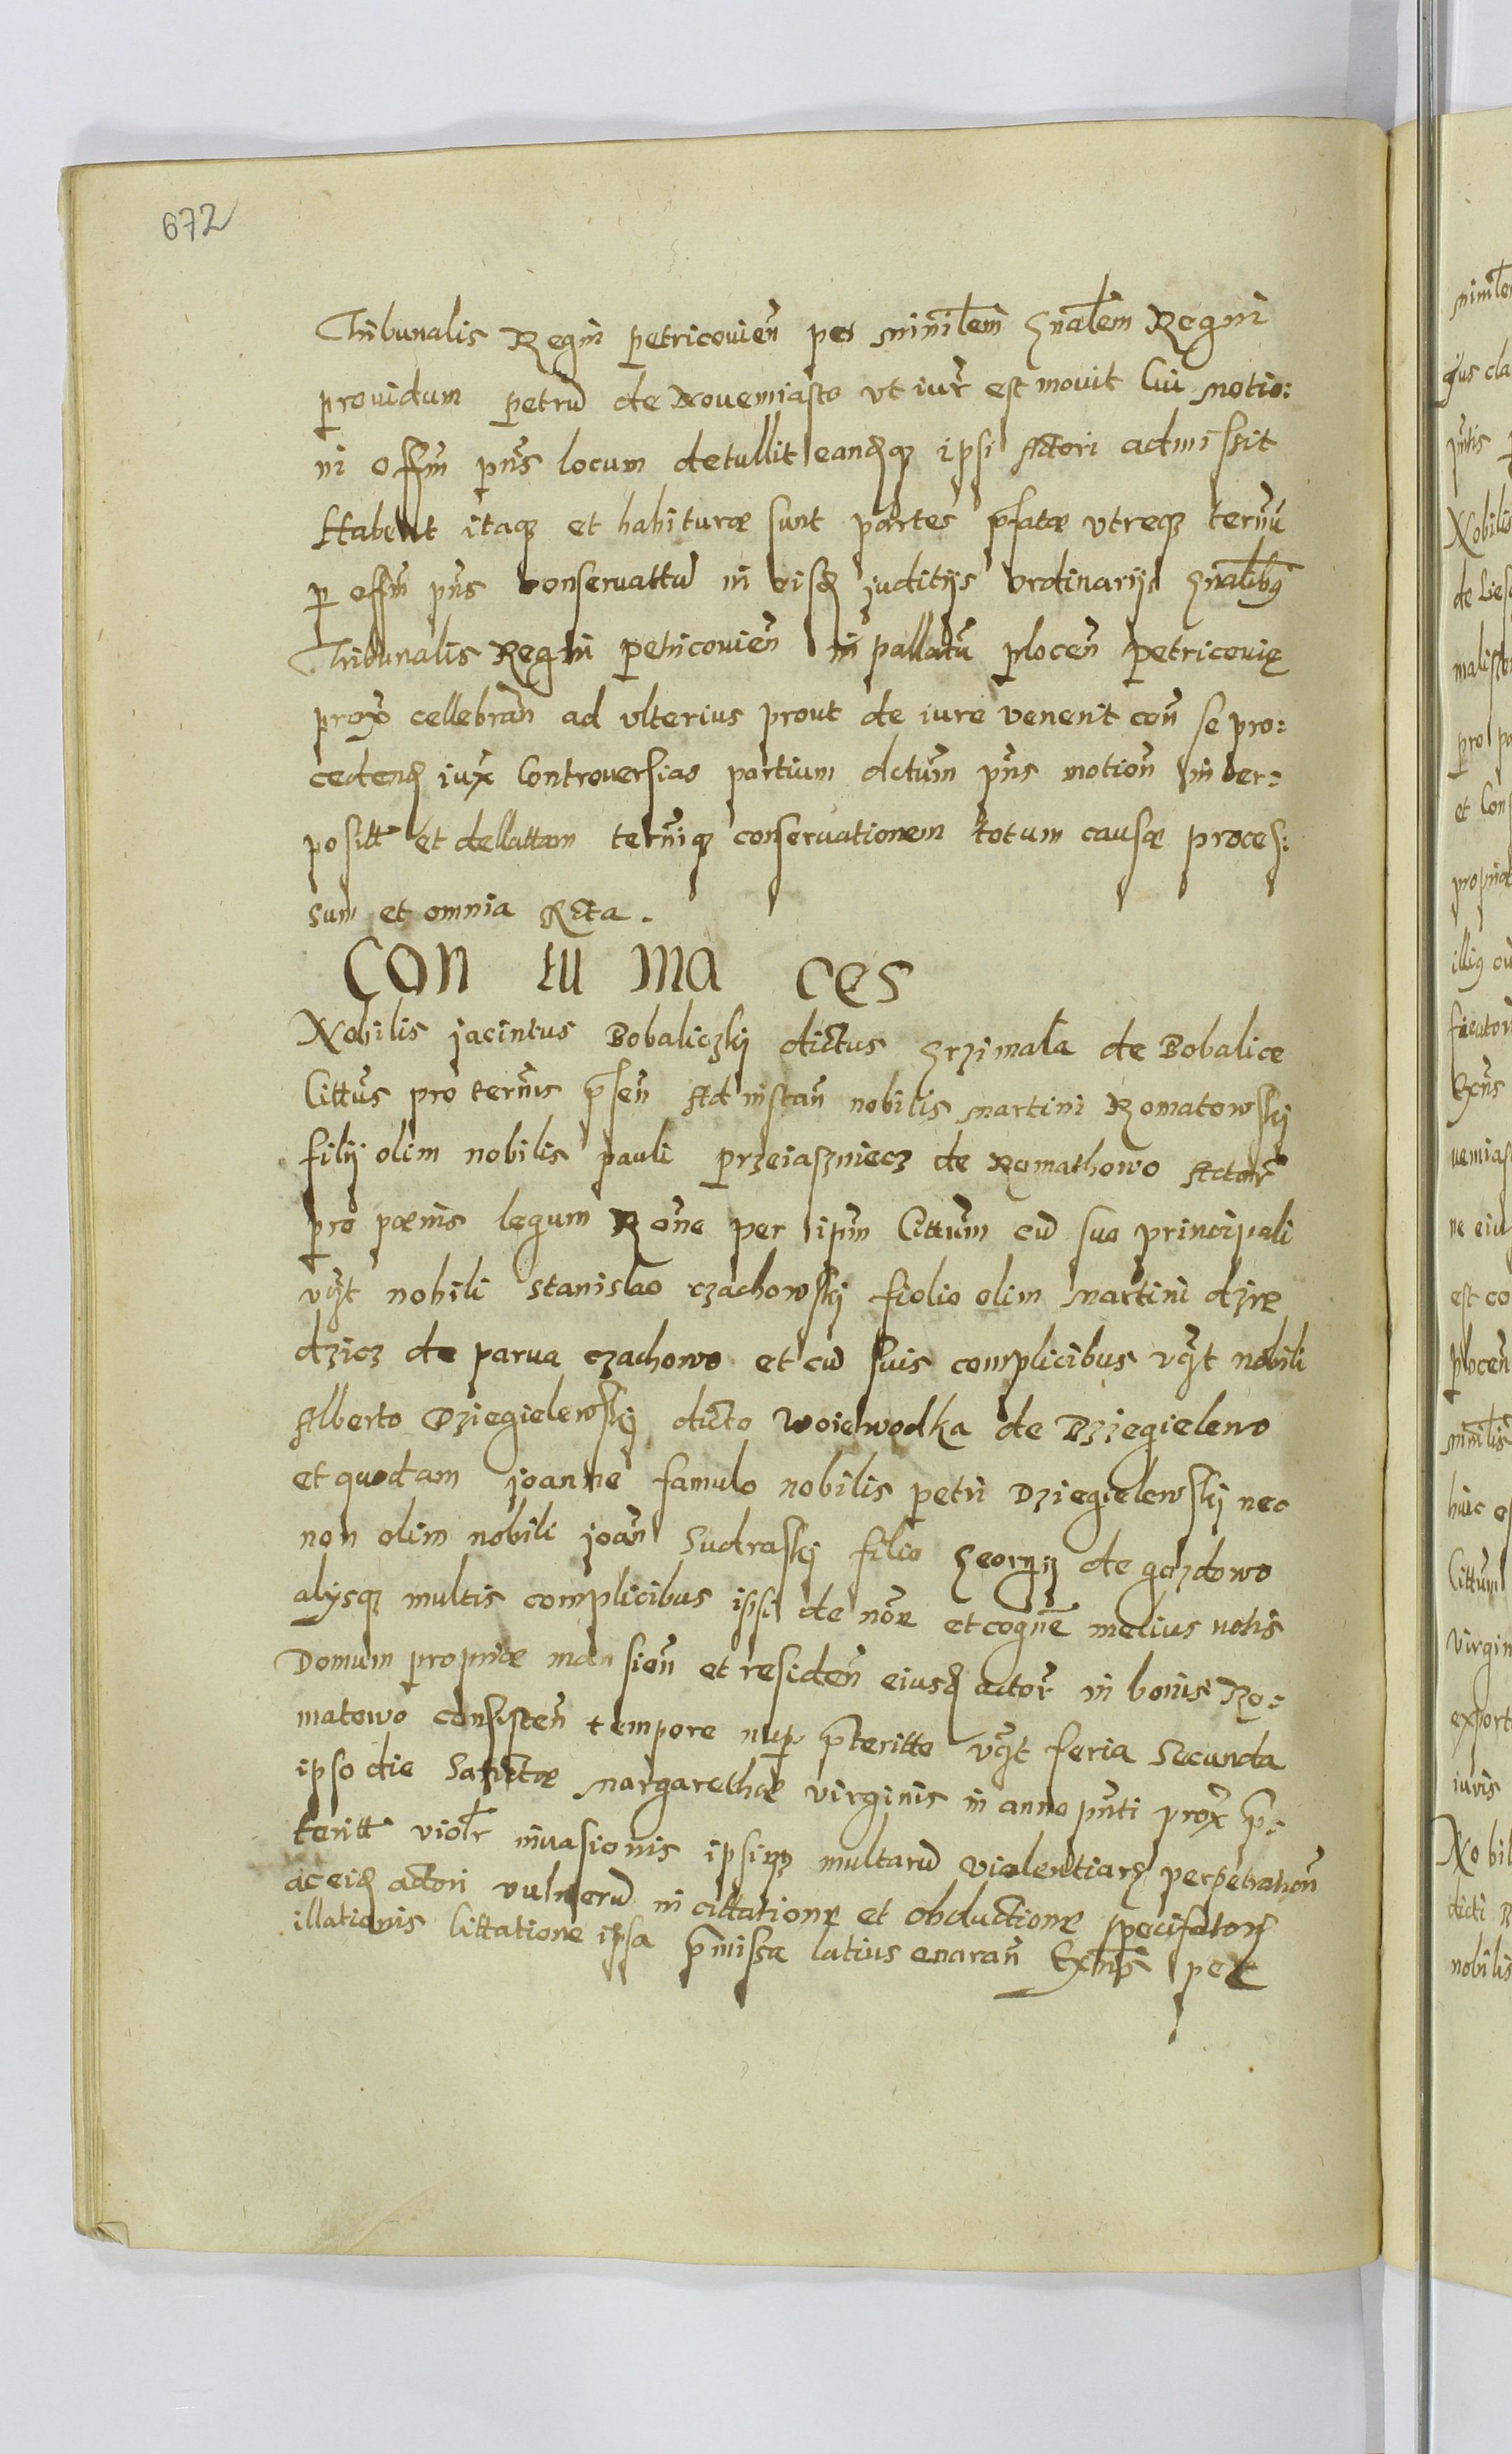 672
Tribunalis Regni petricovien̄ per minīlem Gnālem Regni
providum petrū de Novemiasto vt iur̄ est movit Cui motio:
ni Offm̄ pn̄s locum detullit eandq3 ipsi Actori admissit
Habent itaq3 et habituræ sunt partes p̄fatæ vtreq3 termn̄
p offm̄ pn̄s conservattū in eisd judityis ordinariys Gnālibg
Tribunalis Regni petricovien̄ in pallatū plocen̄ petricovię
prox̄ cellebran̄ ad vlterius prout de iure venerit con̄ se pro:
cedend iux̄ Controversias partium dctum̄ pn̄s motion̄ inter:
positt et dellattam termīq3 conservationem totum causæ proces:
sum et omnia Acta.
CON tu ma ces
Nobilis jacintus Bobaliczkij dictus Grzimala de Bobalice
Cittūs pro termīs p̄sen̄ Ad instan̄ nobilis martini Romatowskij
filij olim nobilis pauli przeiaszniecz de Romathowo Actor̄
pro pœnis legum Rōne per ipm̄ Cittum̄ cū suo principali
vz̄t nobili stanislao czachowskij fiolio olim martini dzie
dzicz de parva czachowo et cū suis complicibus vz̄t nobili
Alberto Dziegielewskij dicto woiewodka de Dziegielewo
et quodam joanne famulo nobilis petri Dziegielewskij nec
non olim nobili joan̄ Sudraskij filio Georgij de gozdowo
alysq3 multis complicibus ipsi de nōie et cognōe melius notis
Domum propriæ mansion̄ et residen̄ eiusd actor̄ in bonis Ro:
matowo consisten̄ tempore nup p̄teritto vz̄t feria Secunda
ipso die Sanctæ margarethæ virginis in anno pn̄ti prox̄ p̄:
teritt violr̄ invasionis ipsiq3 multarū violentiar perpetration̄
ac eid actori vulnerū in cittatione et obductione specifator
illationis Cittatione ipsa p̄missa latius enaran̄ Exn̄s per